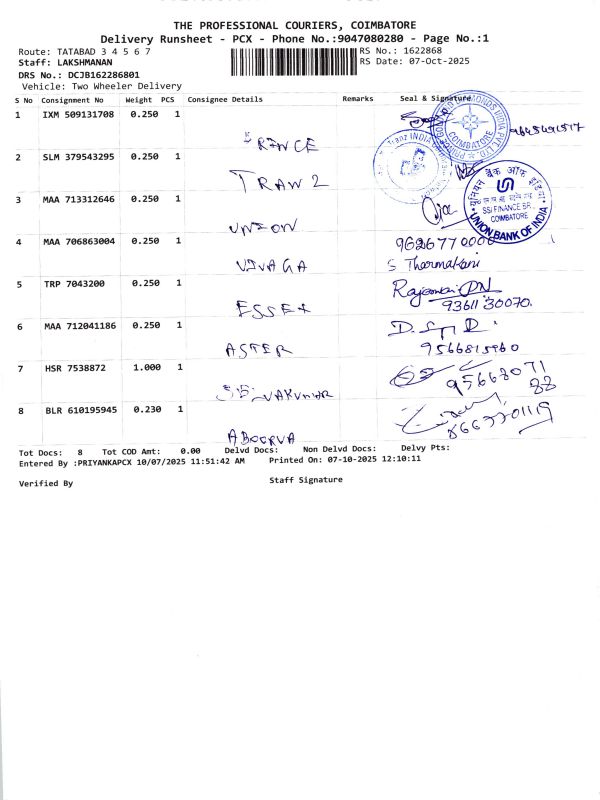 THE PROFESSIONAL COURIERS, COIMBATORE
Delivery Runsheet - PCX - Phone No.:9047080280 - Page No.:1
Route: TATABAD 3 4 5 6 7
RS No.: 1622868
Staff: LAKSHMANAN
RS Date: 07-Oct-2025
DRS No.: DCJB162286801
Vehicle: Two Wheeler Delivery
S No Consignment No Weight PCS Consignee Details Remarks Seal & Signature
1 IXM 509131708 0.250 1
COIMBATORE
2 SLM 379543295 0.250 1
3 MAA 713312646 0.250 1 UNION
यूनियन बैंक ऑफ इंडिया
SSI FINANCE BR.
COIMBATORE
UNION BANK OF INDIA
4 MAA 706863004 0.250 1
S Tharmakani
5 TRP 7043200 0.250 1 ESSEX
9361130070.
6 MAA 712041186 0.250 1 ASTER
9566815960
7 HSR 7538872 1.000 1
8 BLR 610195945 0.230 1 ABOORVA
Tot Docs: 8 Tot COD Amt: 0.00 Delvd Docs: Non Delvd Docs: Delvy Pts:
Entered By :PRIYANKAPCX 10/07/2025 11:51:42 AM Printed On: 07-10-2025 12:10:11
Verified By
Staff Signature